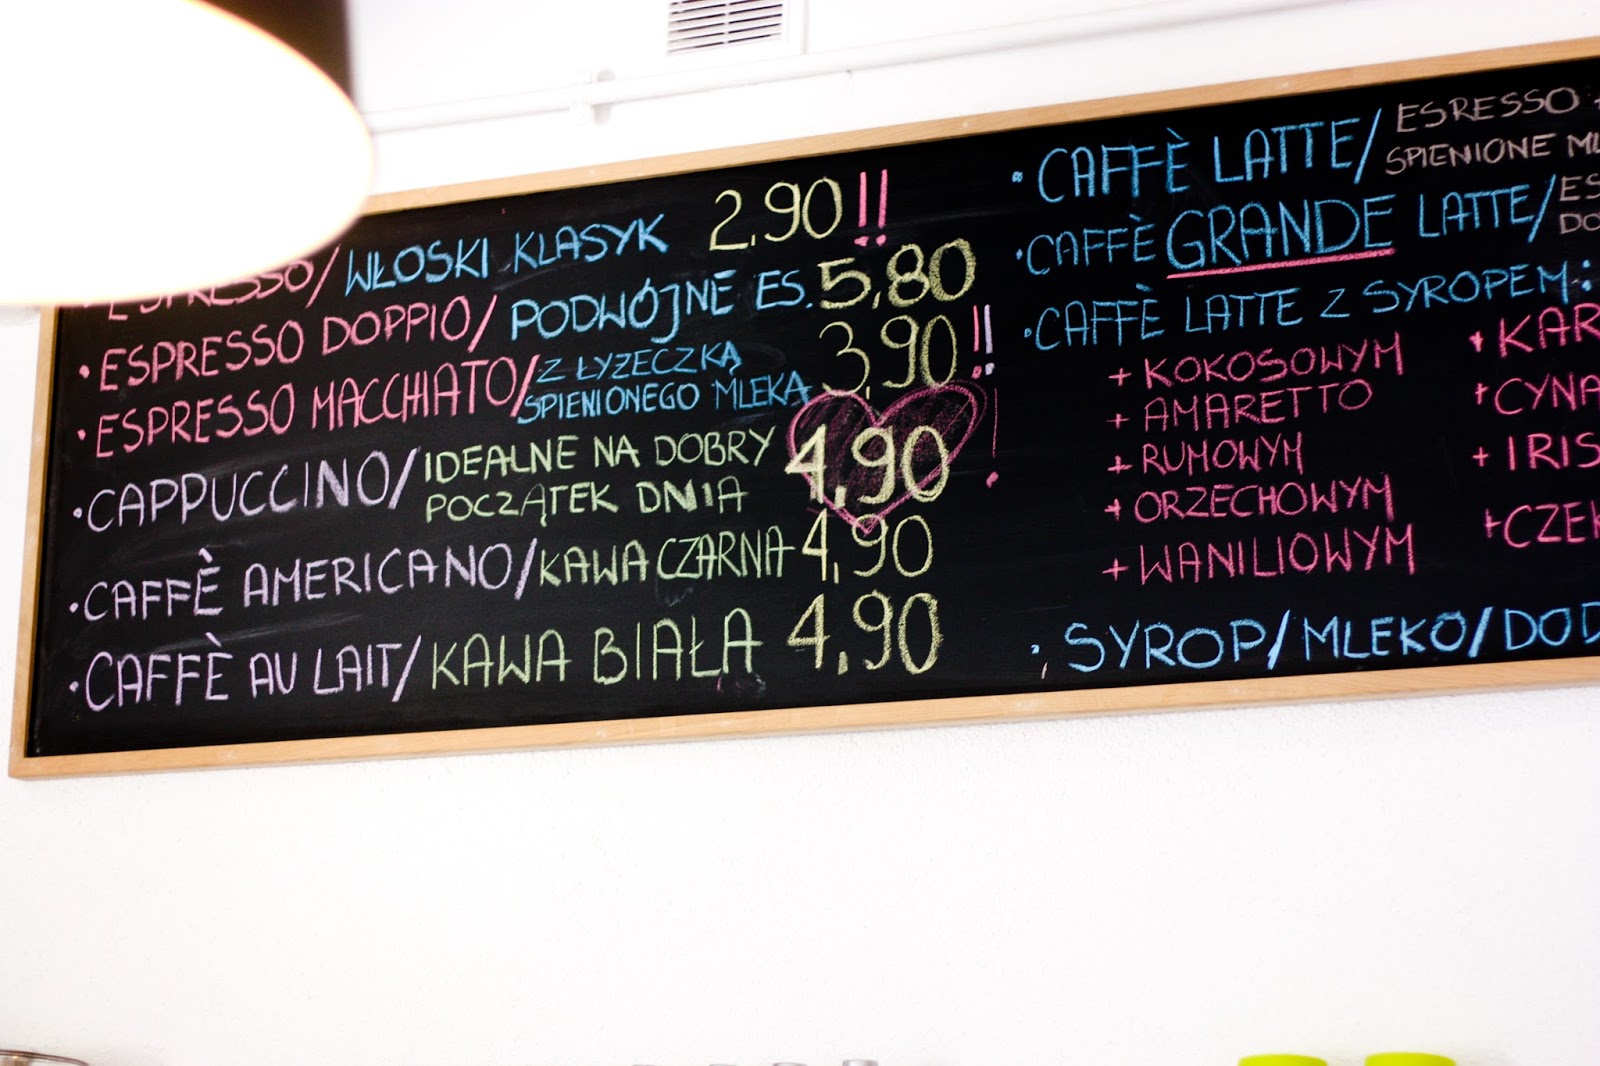 ESPRESSO/ WŁOSKI KLASYK 2,90!!
• ESPRESSO DOPPIO/ PODWÓJNE ES. 5,80
• ESPRESSO MACCHIATO/ Z ŁYZECZKĄ 3,90!!
SPIENIONEGO MLEKA
• CAPPUCCINO/ IDEALNE NA DOBRY 4,90!
POCZĄTEK DNIA
• CAFFÈ AMERICANO/ KAWA CZARNA 4,90
• CAFFÈ AU LAIT/ KAWA BIAŁA 4,90
• CAFFÈ LATTE/ ESRESSO
SPIENIONE
• CAFFÈ GRANDE LATTE/
• CAFFÈ LATTE Z SYROPEM:
+ KOKOSOWYM
+ AMARETTO
+ RUMOWYM
+ ORZECHOWYM
+ WANILIOWYM
• SYROP/MLEKO/